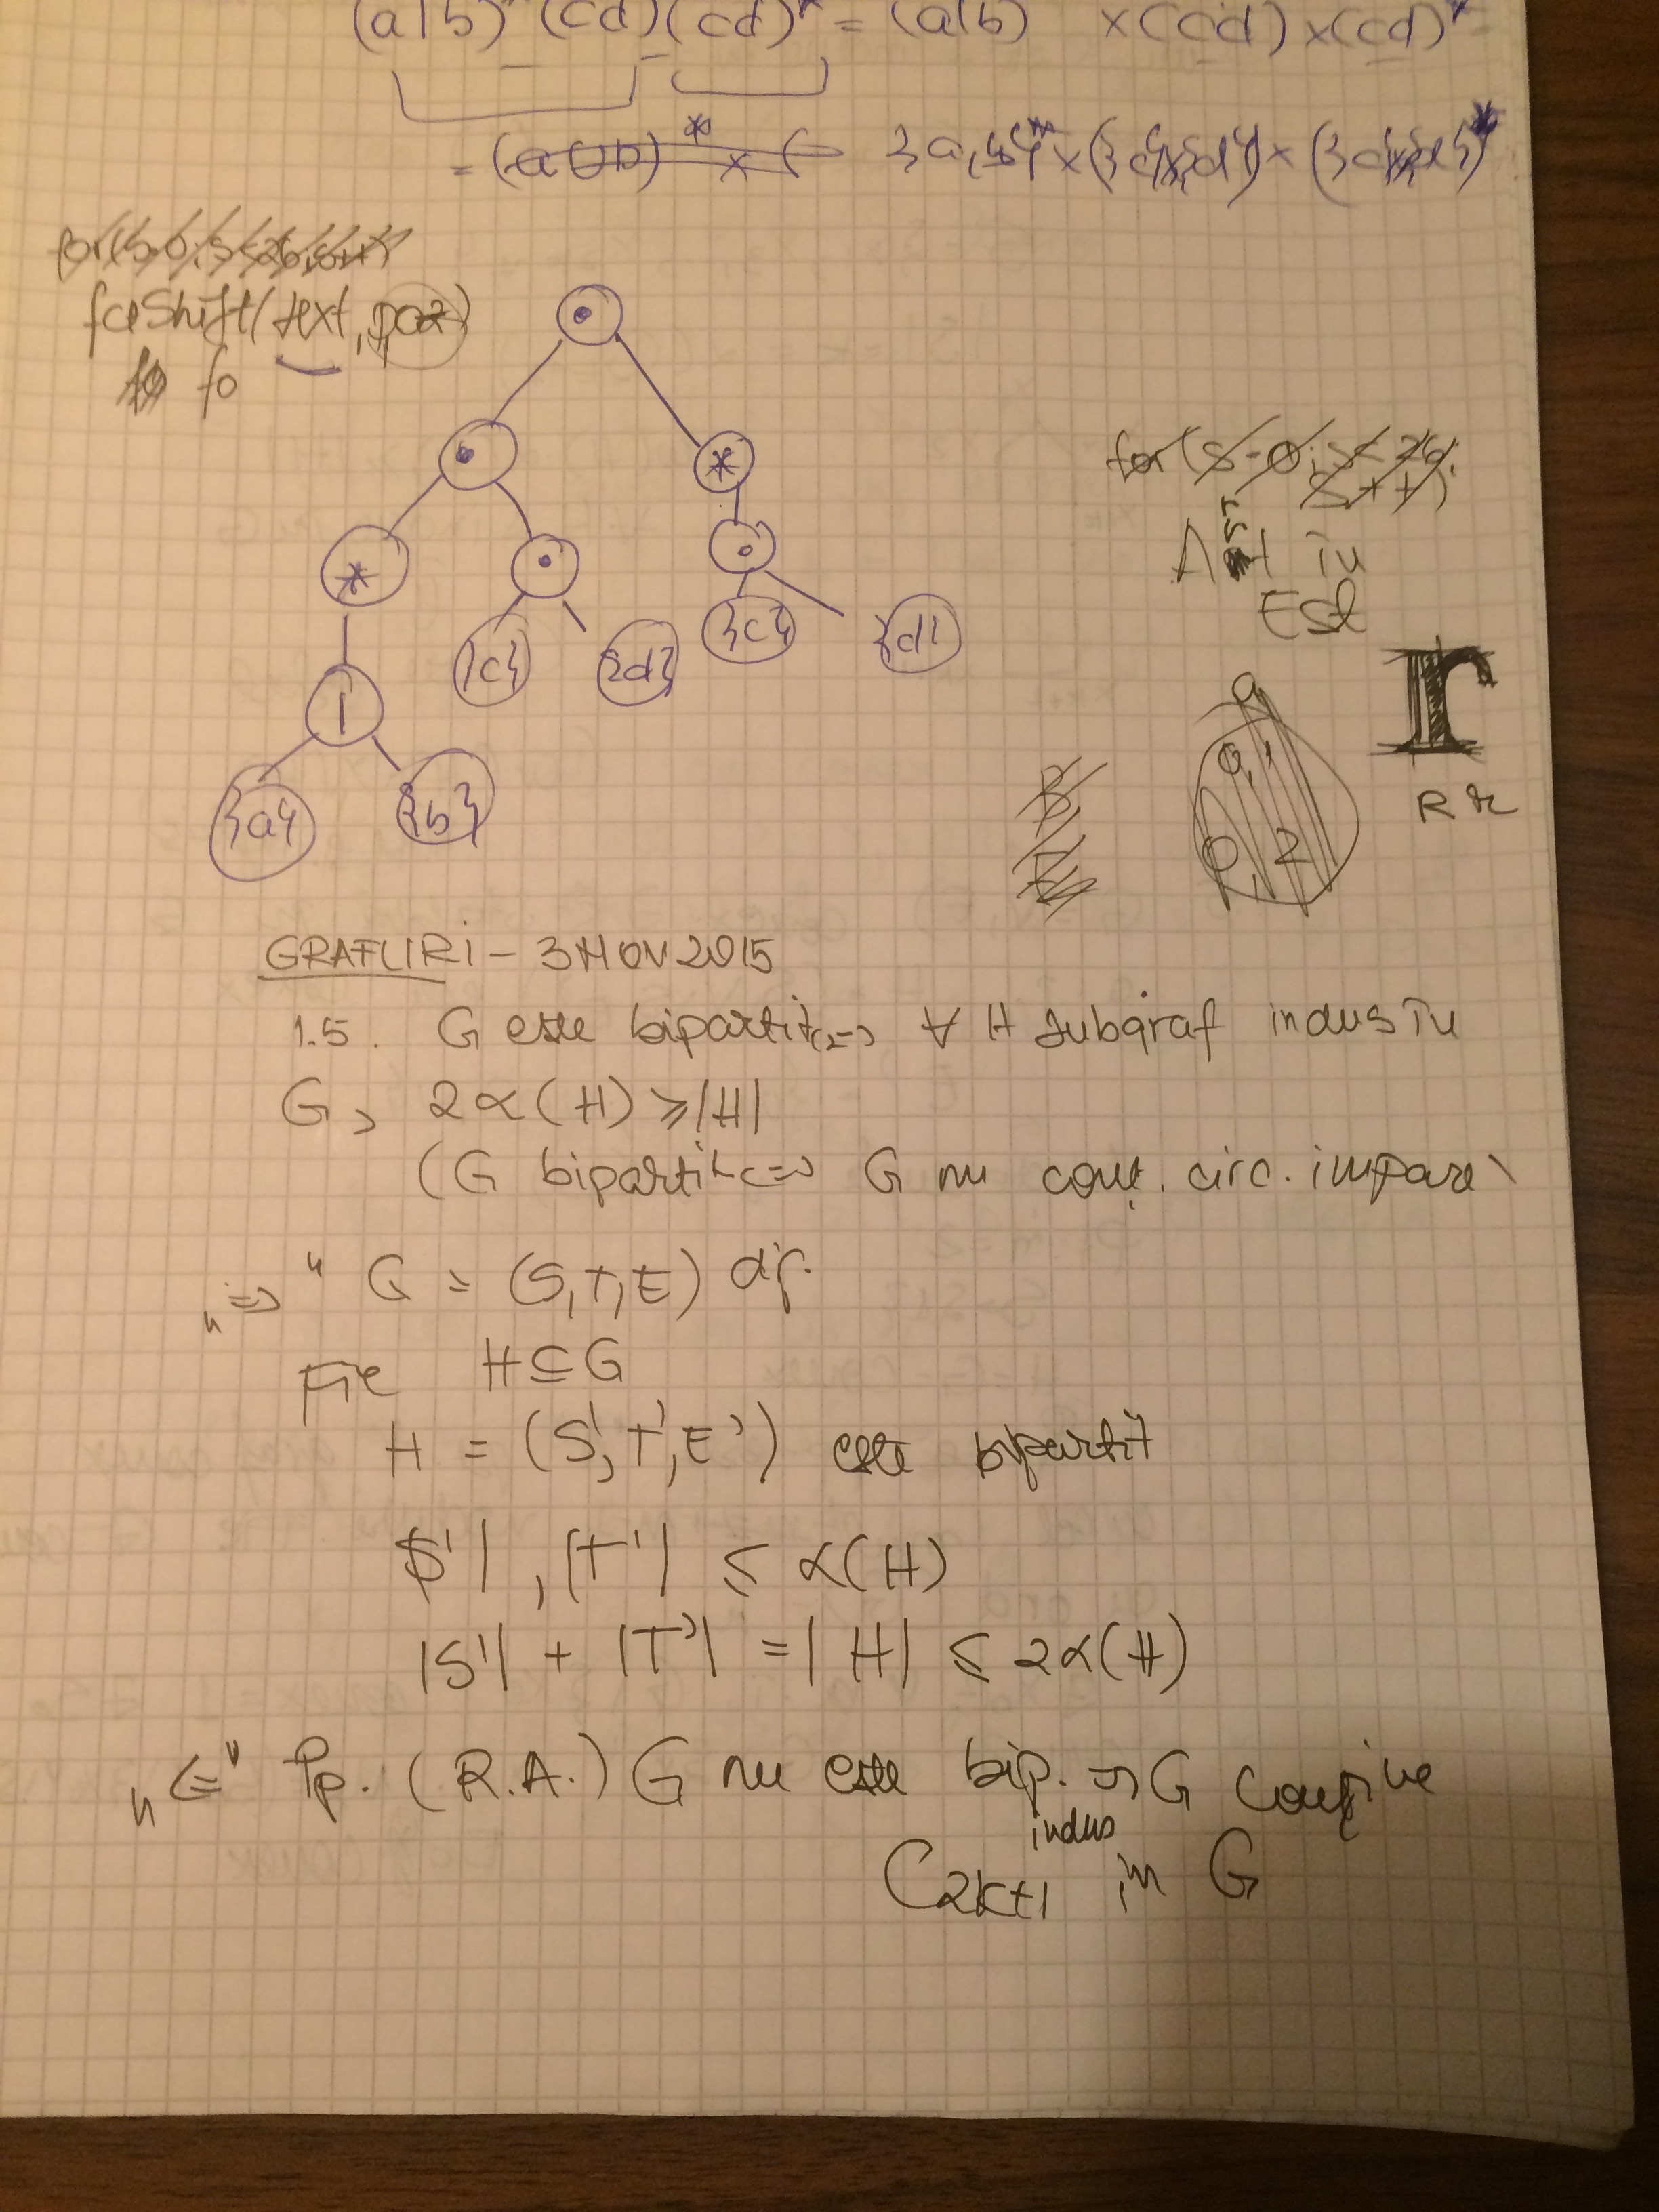 (a|b)* (cd)(cd)* = (a|b) × (cd) × (cd)*
= (a∪b)* × ( {a,b}* × ({c}×{d}) × ({c}×{d})*
for(s=0;s<26;s++)
fceShift(text,poz)
fo
•
• *
* • •
{c} {d} {c} {d}
|
{a} {b}
for(s=0;s<26;
s++)
în
Est
r
R r
a
0,1
0,1 2
GRAFURI - 3 NOV 2015
1.5. G este bipartit <=> ∀ H subgraf indus în
G, 2α(H) ≥ |H|
(G bipartit <=> G nu conț. circ. impare)
"=>" G = (S,T,E) dif.
Fie H ⊆ G
H = (S',T',E') este bipartit
|S'|, |T'| ≤ α(H)
|S'| + |T'| = |H| ≤ 2α(H)
"<=" Pp. (R.A.) G nu este bip. => G conține
indus
C2k+1 in G